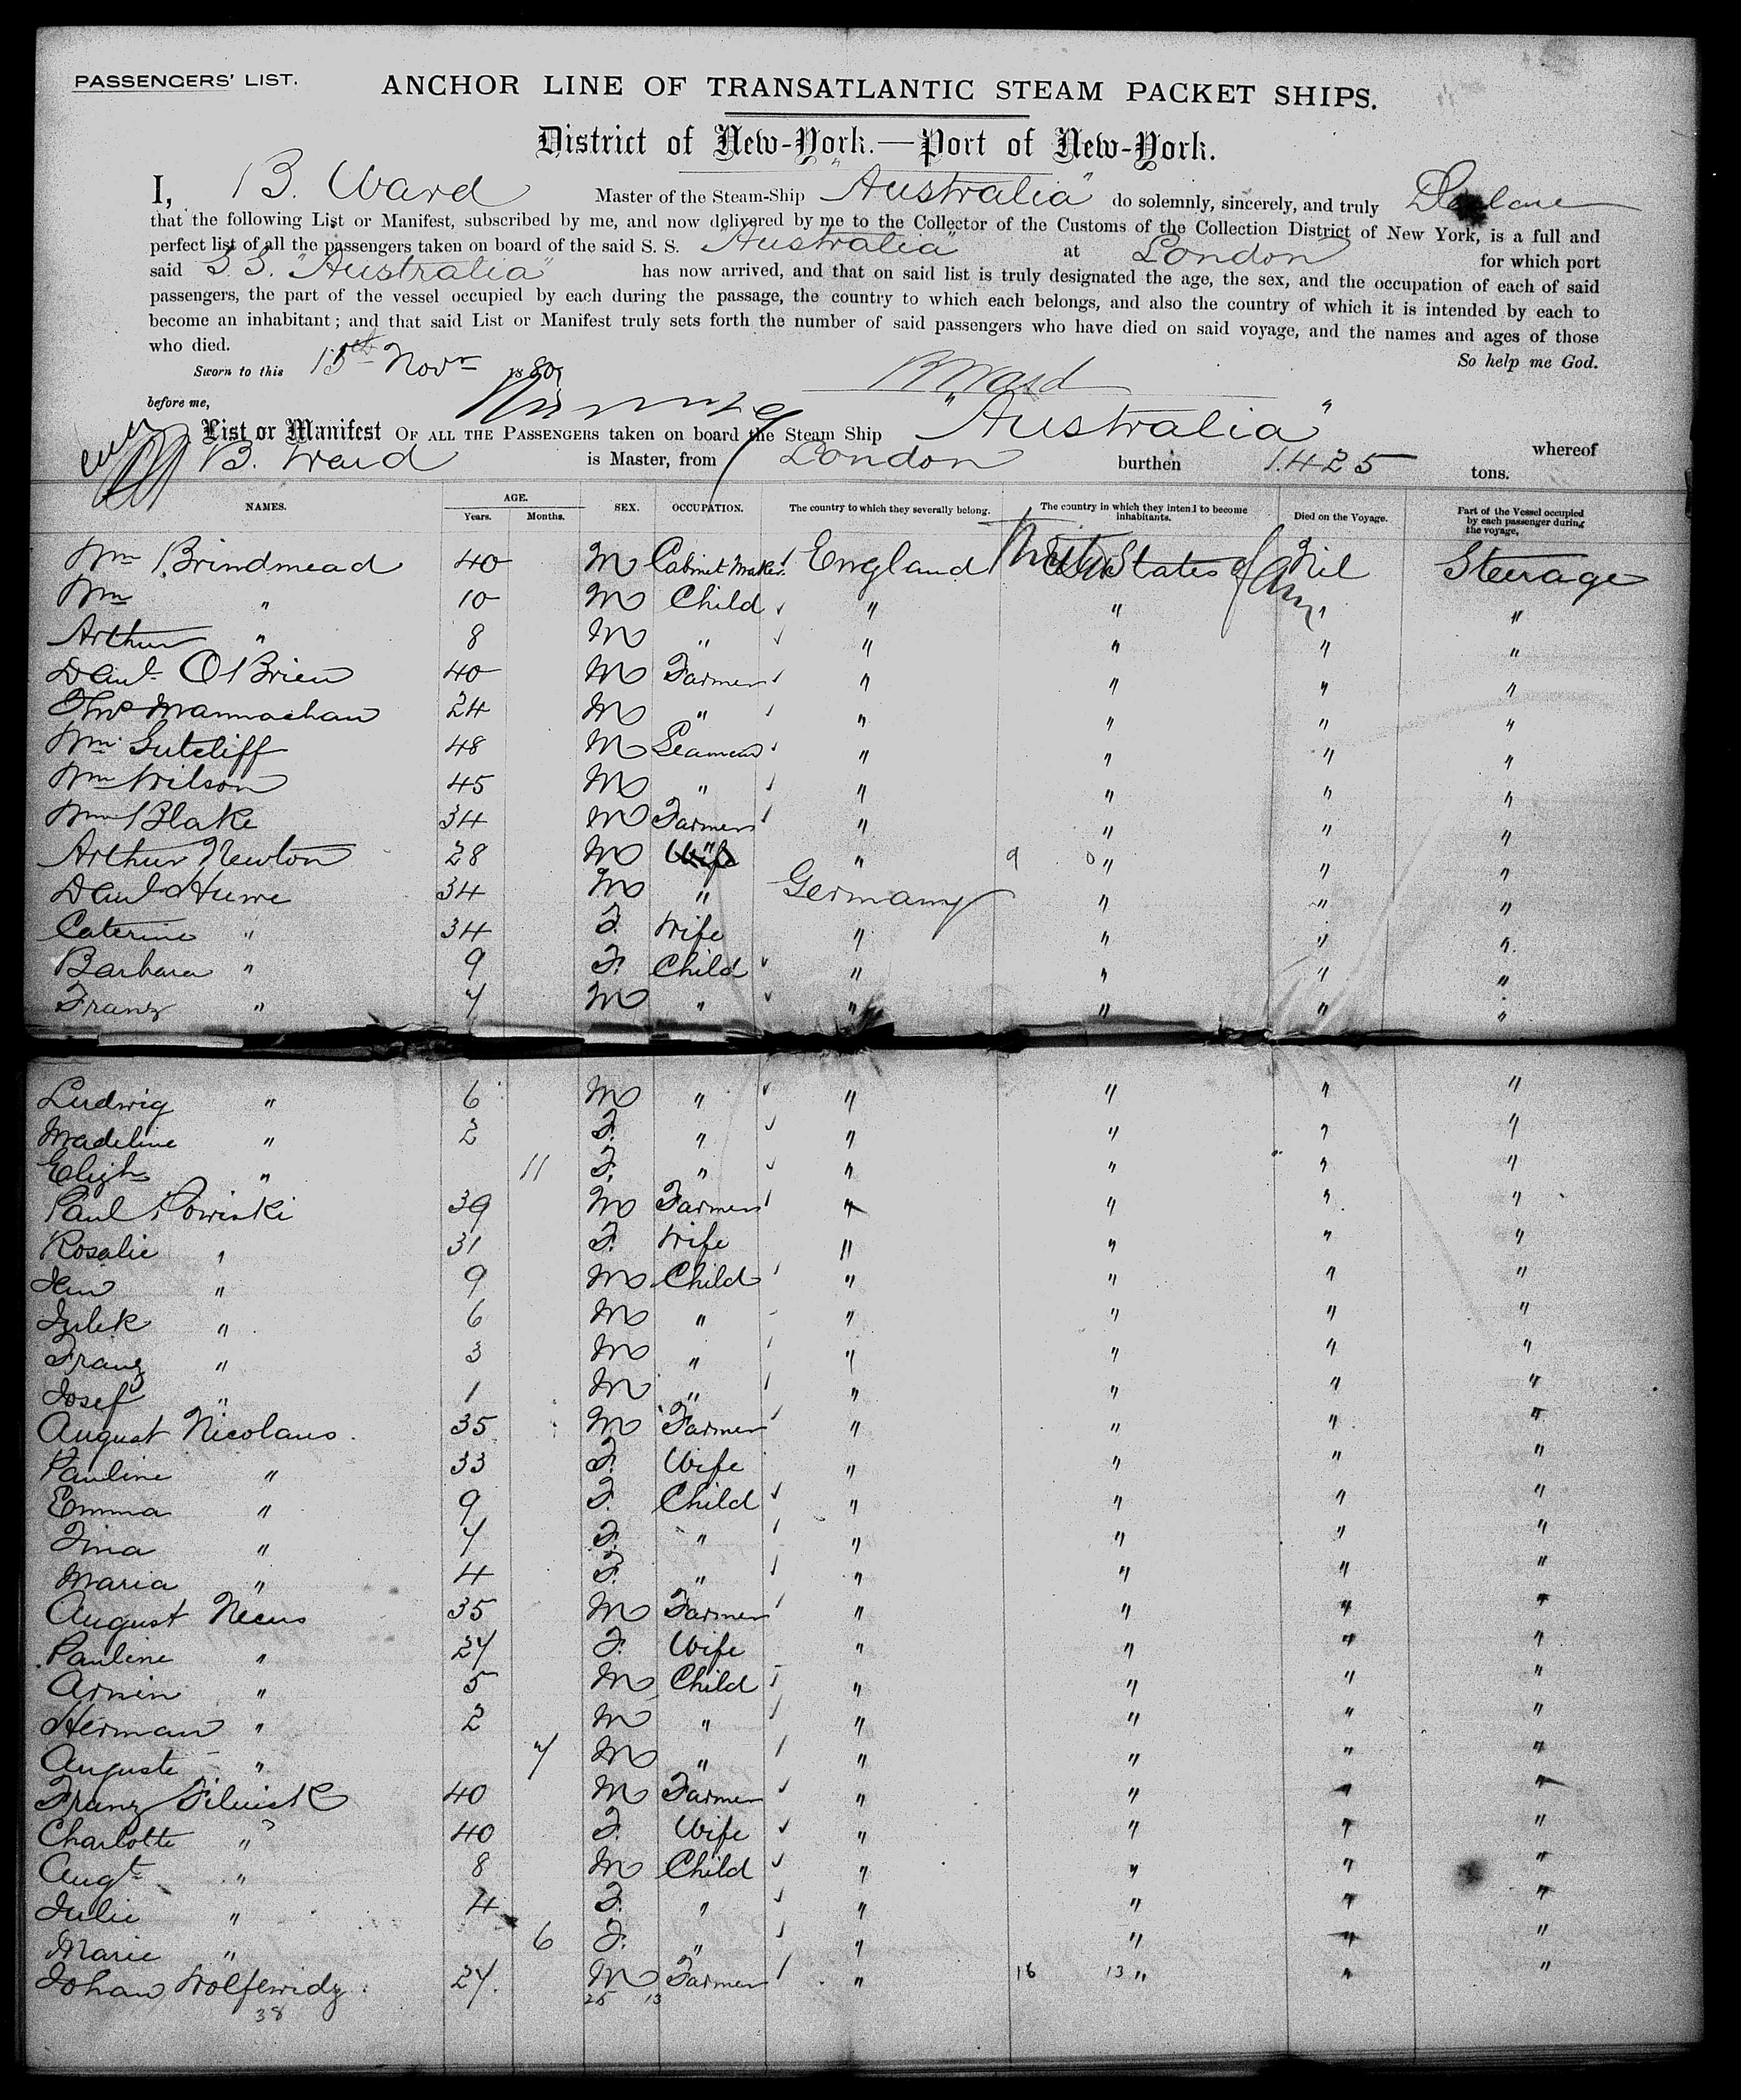 PASSENGERS' LIST.
ANCHOR LINE OF TRANSATLANTIC STEAM PACKET SHIPS.
District of New-York.—Port of New-York.
I, B. Ward Master of the Steam-Ship "Australia" do solemnly, sincerely, and truly Declare
that the following List or Manifest, subscribed by me, and now delivered by me to the Collector of the Customs of the Collection District of New York, is a full and
perfect list of all the passengers taken on board of the said S. S. "Australia" at London for which port
said S.S. "Australia" has now arrived, and that on said list is truly designated the age, the sex, and the occupation of each of said
passengers, the part of the vessel occupied by each during the passage, the country to which each belongs, and also the country of which it is intended by each to
become an inhabitant; and that said List or Manifest truly sets forth the number of said passengers who have died on said voyage, and the names and ages of those
who died. So help me God.
Sworn to this 15th Novr 1880
B Ward
before me,
List or Manifest OF ALL THE PASSENGERS taken on board the Steam Ship "Australia" whereof
B. Ward is Master, from London burthen 1425 tons.
NAMES. AGE. Years. Months. SEX. OCCUPATION. The country to which they severally belong. The country in which they intend to become inhabitants. Died on the Voyage. Part of the Vessel occupied by each passenger during the voyage.
Wm Brindmead 40 M Cabinet Maker England United States of Am Nil Steerage
Wm " 10 M Child " " " "
Arthur " 8 M " " " " "
Danl O'Brien 40 M Farmer " " " "
Thos Mannachan 24 M " " " " "
Wm Sutcliff 48 M Seaman " " " "
Wm Wilson 45 M " " " " "
Wm Blake 34 M Farmer " " " "
Arthur Newton 28 M " " 9 0 " " "
Danl Huwe 34 M " Germany " " "
Caterine " 34 F. Wife " " " "
Barbara " 9 F. Child " " " "
Franz " 7 M " " " " "
Ludwig " 6 M " " " " "
Madeline " 2 F. " " " " "
" 11 F. " " " " "
Paul Powiski 39 M Farmer " " " "
Rosalie " 31 F. Wife " " " "
" 9 M Child " " " "
Julek " 6 M " " " " "
Franz " 3 M " " " " "
Josef " 1 M " " " " "
August Nicolaus 35 M Farmer " " " "
Pauline " 33 F. Wife " " " "
Emma " 9 F. Child " " " "
Tina " 7 F. " " " " "
Maria " 4 F. " " " " "
August Necus 35 M Farmer " " " "
Pauline " 27 F. Wife " " " "
Armin " 5 M Child " " " "
Herman " 2 M " " " " "
Auguste " 7 M " " " " "
Franz 40 M Farmer " " " "
Charlotte " 40 F. Wife " " " "
Augt " 8 M Child " " " "
Julie " 4 F. " " " " "
Marie " 6 F. " " " " "
Johan Wolfewidz 27. M Farmer " 16 13 " " "
38 25 13